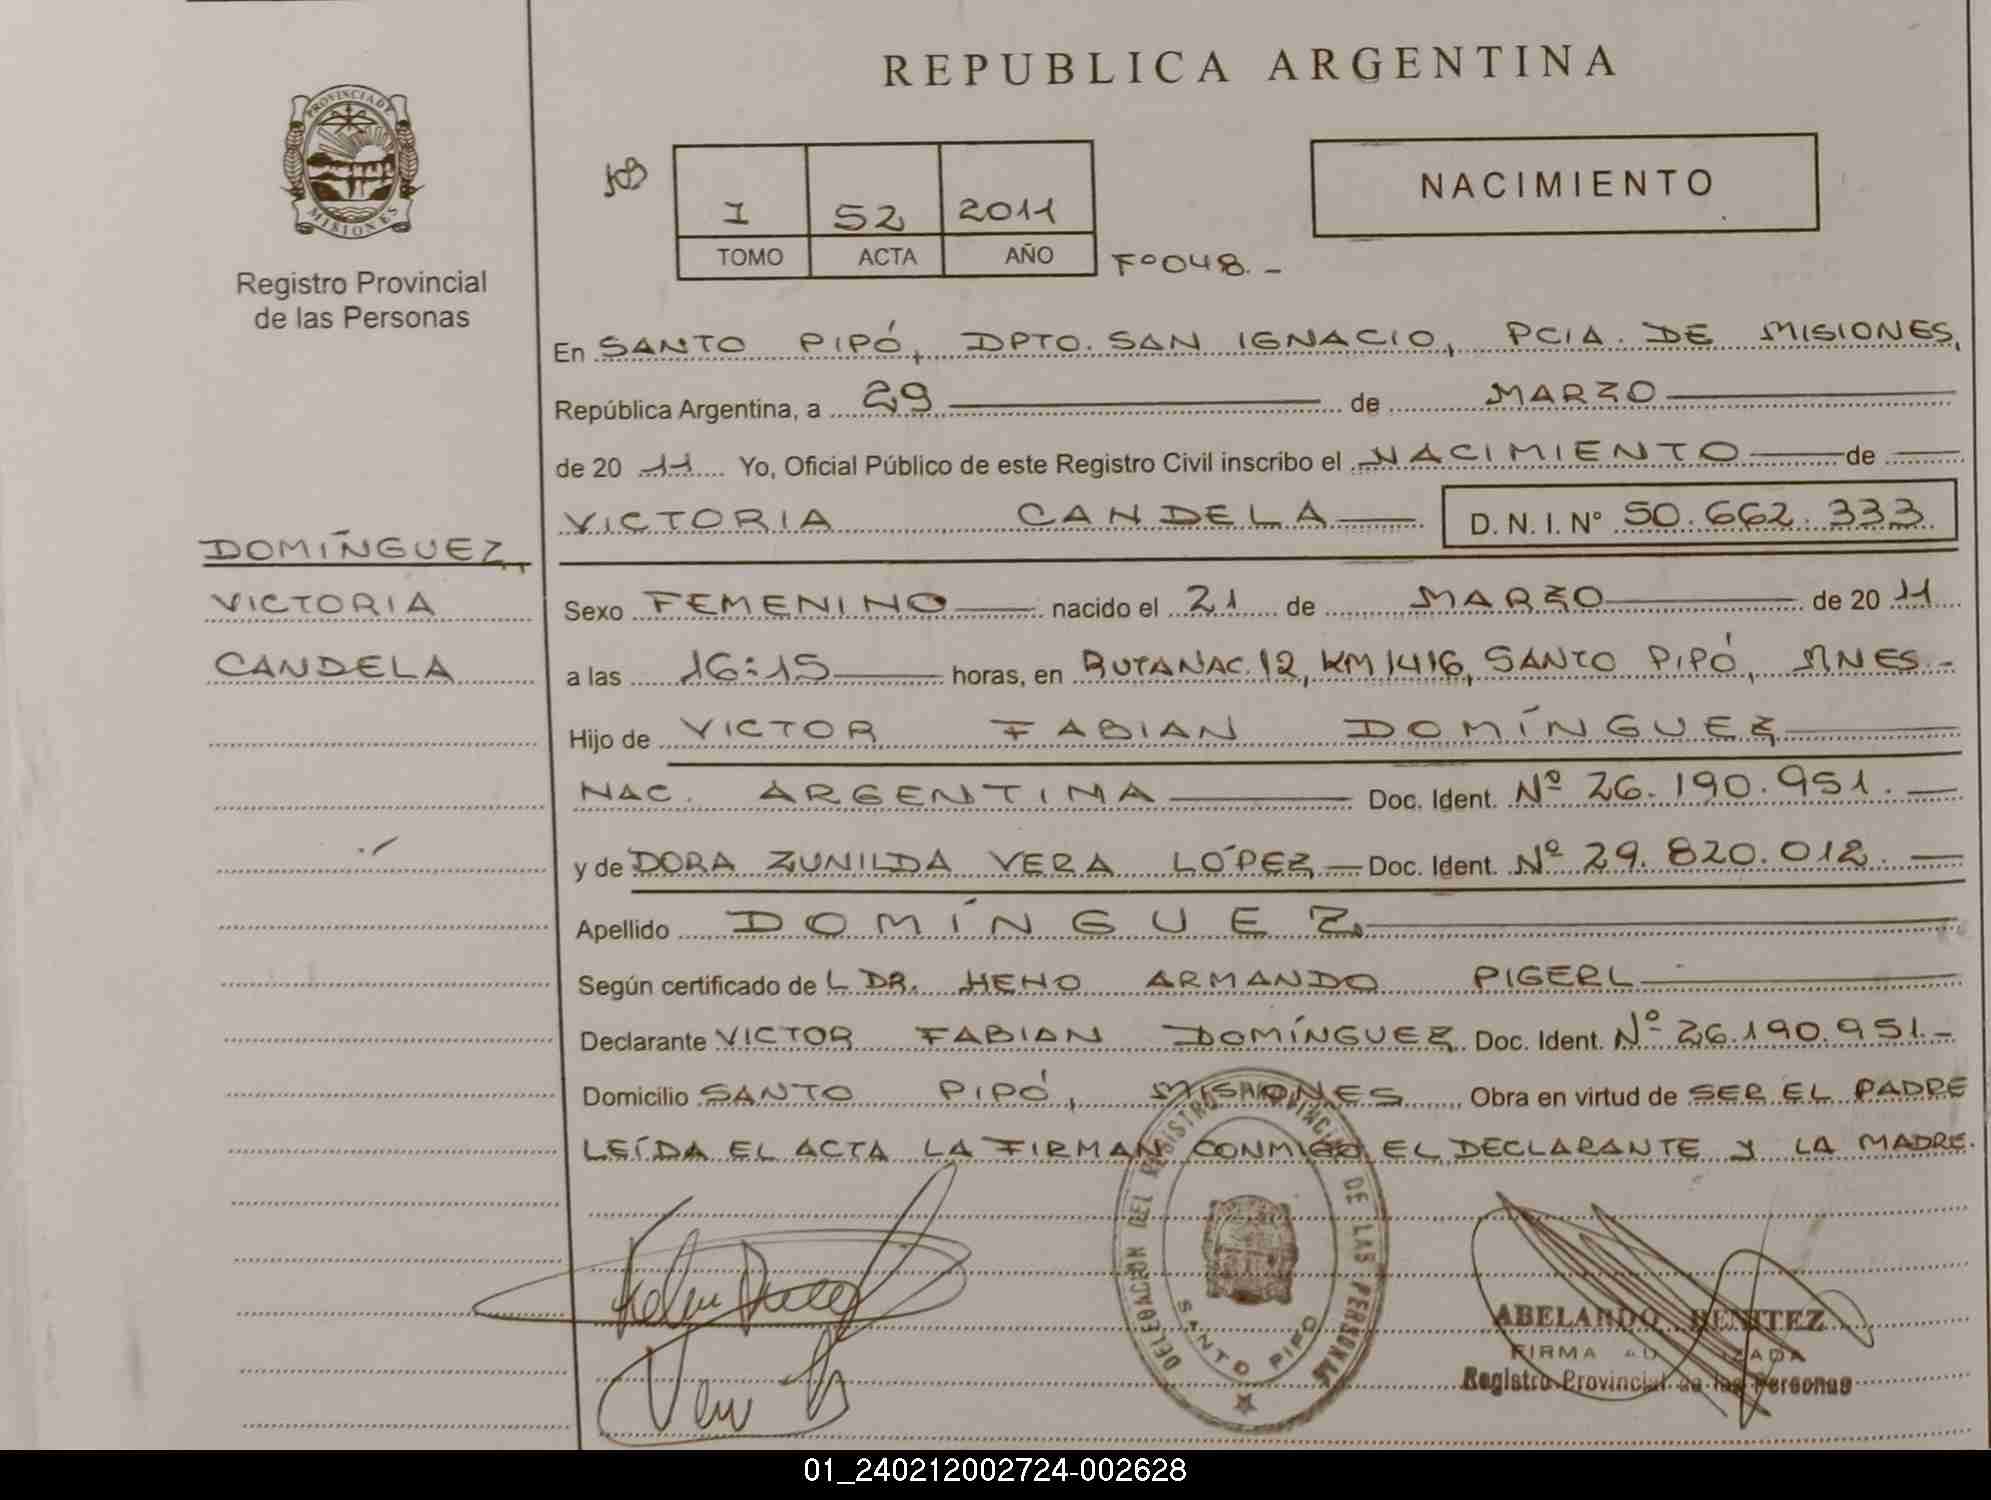 REPUBLICA ARGENTINA
PROVINCIA DE
MISIONES
Registro Provincial
de las Personas
NACIMIENTO
I 52 2011
TOMO ACTA AÑO
Fº048.-
En SANTO PIPÓ, DPTO. SAN IGNACIO, PCIA. DE MISIONES,
República Argentina, a 29 de MARZO
de 20 11 Yo, Oficial Público de este Registro Civil inscribo el NACIMIENTO de
VICTORIA CANDELA D. N. I. Nº 50.662.333
DOMÍNGUEZ,
VICTORIA
CANDELA
Sexo FEMENINO nacido el 21 de MARZO de 20 11
a las 16:15 horas, en RUTA NAC. 12, KM 1416, SANTO PIPÓ, MNES.-
Hijo de VICTOR FABIAN DOMÍNGUEZ
NAC. ARGENTINA Doc. Ident. Nº 26.190.951.
y de DORA ZUNILDA VERA LÓPEZ Doc. Ident. Nº 29.820.012.
Apellido DOMÍNGUEZ
Según certificado de L DR. HENO ARMANDO PIGERL
Declarante VICTOR FABIAN DOMÍNGUEZ Doc. Ident. Nº 26.190.951.-
Domicilio SANTO PIPÓ, MISIONES Obra en virtud de SER EL PADRE
LEÍDA EL ACTA LA FIRMAN CONMIGO EL DECLARANTE Y LA MADRE.
DELEGACION DEL REGISTRO PROVINCIAL DE LAS PERSONAS
SANTO PIPO
ABELARDO BENITEZ
FIRMA
Registro Provincial de las Personas
01_240212002724-002628